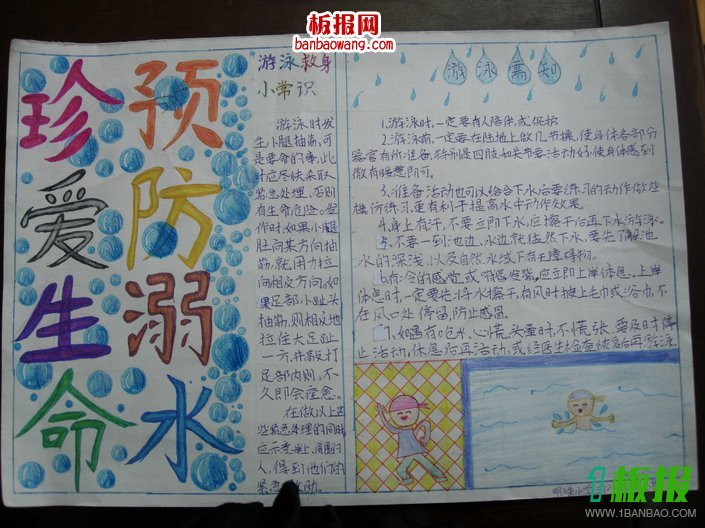 板报网
banbaowang.com
预防溺水
珍爱生命
游泳救身
小常识
游泳时发
生小腿抽筋,可
是要命的事,此
时应尽快采取
紧急处理,否则
有生命危险。发
作时,如果小腿
肚向某方向抽
筋,就用力拉
向相反方向。如
果足部小趾头
抽筋,则相反地
拉住大足趾上
一方,并敲打
足部内则,不
久即会痊愈。
在做以上这
些紧急处理的同时,
应示意岸上周围的
人,得到他们的
紧急
助。
游泳需知
1.游泳时,一定要有人陪伴或保护
2.游泳前,一定要在陆地上做几节操,使身体各部分
器官有所准备,特别是四肢和关节要活动好,使身体感到
微有暖意即可。
3.准备活动也可以结合下水后要练习的动作做些
模仿练习,更有利于提高水中动作效果。
4.身上有汗,不要立即下水,应擦干后再下水游泳。
5.不要一到池边,水边就猛然下水,要先了解池
水的深浅,以及自然水域下有无障碍物。
6.有冷的感觉或嘴唇发紫,应立即上岸休息。上岸
休息时,一定要先将水擦干,有风时披上毛巾或浴巾,不
在风口处停留,防止感冒。
7.如遇有呛水、心慌、头晕时,不慌张,要及时停
止活动,休息后再活动,或经医生检查恢复后再游泳。
明珠小学
1板报
WWW.1BANBAO.COM